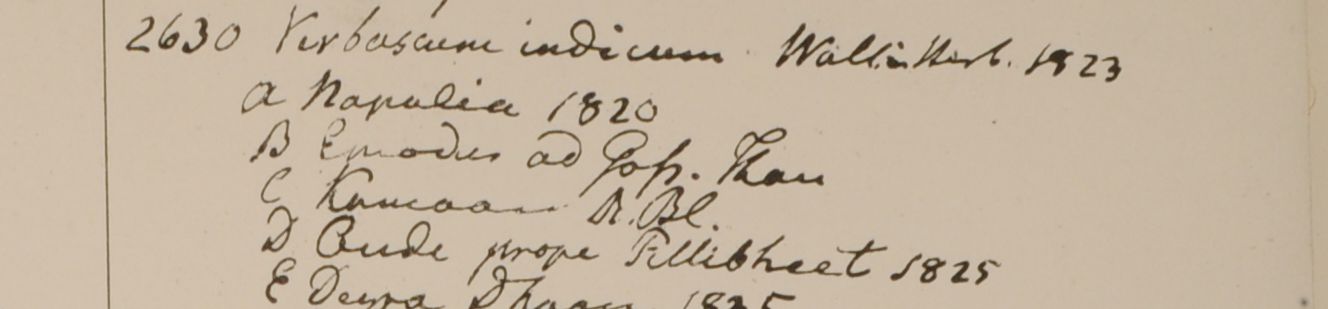 2630 Verbascum indicum Wall. in Herb. 1823
a Napalia 1820
B Emodus ad Gos. Than
C Kamaon R. Bl.
D Oude prope Pillibheet 1825
E Deyra Dhoon 1825